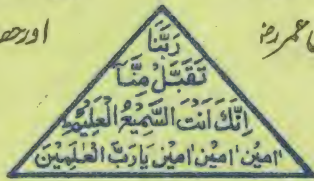 اور حض
عمر رضؓ
رَبَّنَا
تَقَبَّلْ مِنَّا
اِنَّكَ اَنْتَ السَّمِيْعُ الْعَلِيْمُ
اٰمِيْن اٰمِيْن اٰمِيْن يَارَبَّ الْعٰلَمِيْنَ